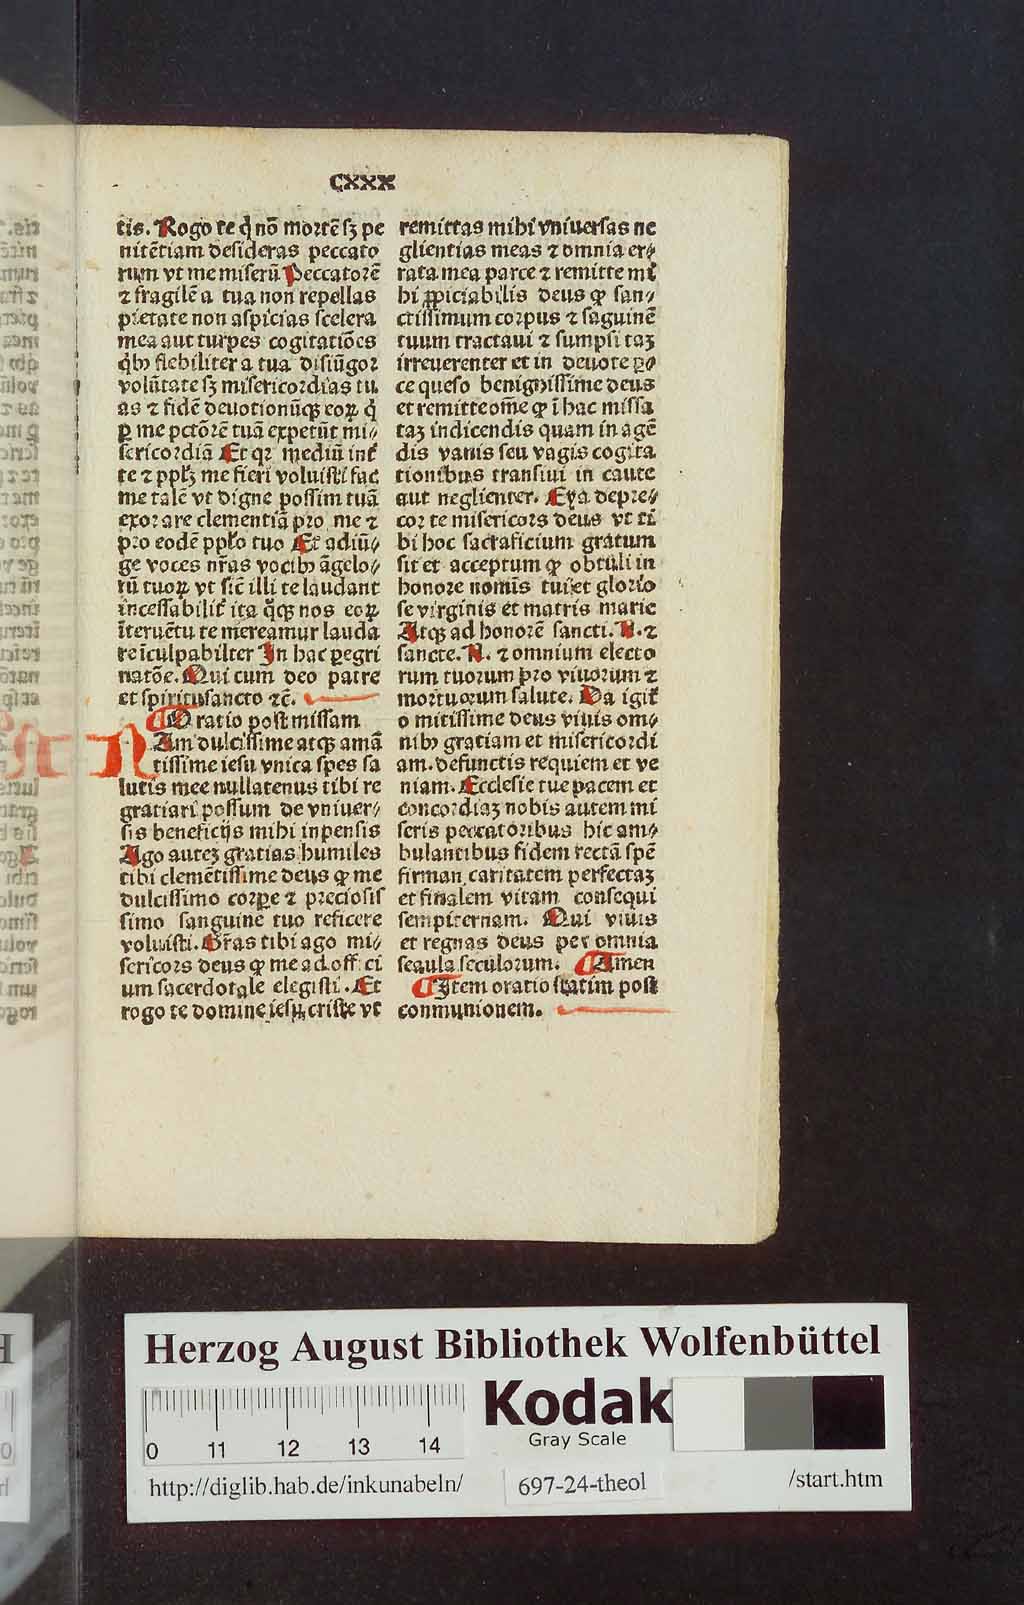 CXXX
tis. Rogo te q̇ nō mortē sꝫ pe
nitētiam desideras peccato
rum vt me miserū Peccatorē
⁊ fragilē a tua non repellas
pietate non aspicias scelera
mea aut turpes cogitatiōes
q̇bꝰ flebiliter a tua disiūgor
volūtate sꝫ misericordias tu
as ⁊ fidē deuotionūqꝫ eoꝝ q̇
ꝑ me pctōrē tuā expetūt mi⸗
sericordiā Et qꝛ mediū int̄
te ⁊ ppl̄ꝫ me fieri voluisti fac
me talē vt digne possim tuā
exorare clementiā pro me ⁊
pro eodē ppl̄o tuo Et adiū⸗
ge voces nr̄as vocibꝰ āgelo⸗
rū tuoꝝ vt sic̄ illi te laudant
incessabilit̄ ita q̄qꝫ nos eoꝝ
īteruētu te mereamur lauda
re īculpabilter In hac ꝑegri
natōe. Qui cum deo patre
et spiritusancto ⁊c̄.
Oratio post missam
NAm dulcissime atqꝫ amā
tissime iesu vnica spes sa
lutis mee nullatenus tibi re
gratiari possum de vniuer⸗
sis beneficijs mihi inpensis
Ago auteꝫ gratias humiles
tibi clemētissime deus ꝙ me
dulcissimo corꝑe ⁊ preciosis
simo sanguine tuo reficere
voluisti. Gr̄as tibi ago mi⸗
sericors deus ꝙ me ad offici
um sacerdotale elegisti. Et
rogo te domine iesu criste vt
remittas mihi vniuersas ne
glientias meas ⁊ omnia er⸗
rata mea parce ⁊ remitte mi
hi ꝓpiciabilis deus ꝙ san⸗
ctissimum corpus ⁊ sāguinē
tuum tractaui ⁊ sumpsi taꝫ
irreuerenter et in deuote ꝑ⸗
ce queso benignissime deus
et remitte om̄e ꝙ ī hac missa
taꝫ indicendis quam in agē
dis vanis seu vagis cogita
tionibus transiui in caute
aut neglienter. Eya depre⸗
cor te misericors deus vt ti
bi hoc sacraficium gratum
sit et acceptum ꝙ obtuli in
honore nomīs tui et glorio
se virginis et matris marie
Atqꝫ ad honorē sancti. N. ⁊
sancte. N. ⁊ omnium electo
rum tuorum pro viuorum ⁊
mortuorum salute. Da igit̄
o mitissime deus viuis om⸗
nibꝰ gratiam et misericordi
am. defunctis requiem et ve
niam. Ecclesie tue pacem et
concordiaꝫ nobis autem mi
seris peccatoribus hic am⸗
bulantibus fidem rectā spē
firmam caritatem perfectaꝫ
et finalem vitam consequi
sempiternam. Qui viuis
et regnas deus per omnia
seaula seculorum. Amen
Item oratio statim post
conmunionem.
Herzog August Bibliothek Wolfenbüttel
0 11 12 13 14
Kodak
Gray Scale
http://diglib.hab.de/inkunabeln/
697-24-theol
/start.htm